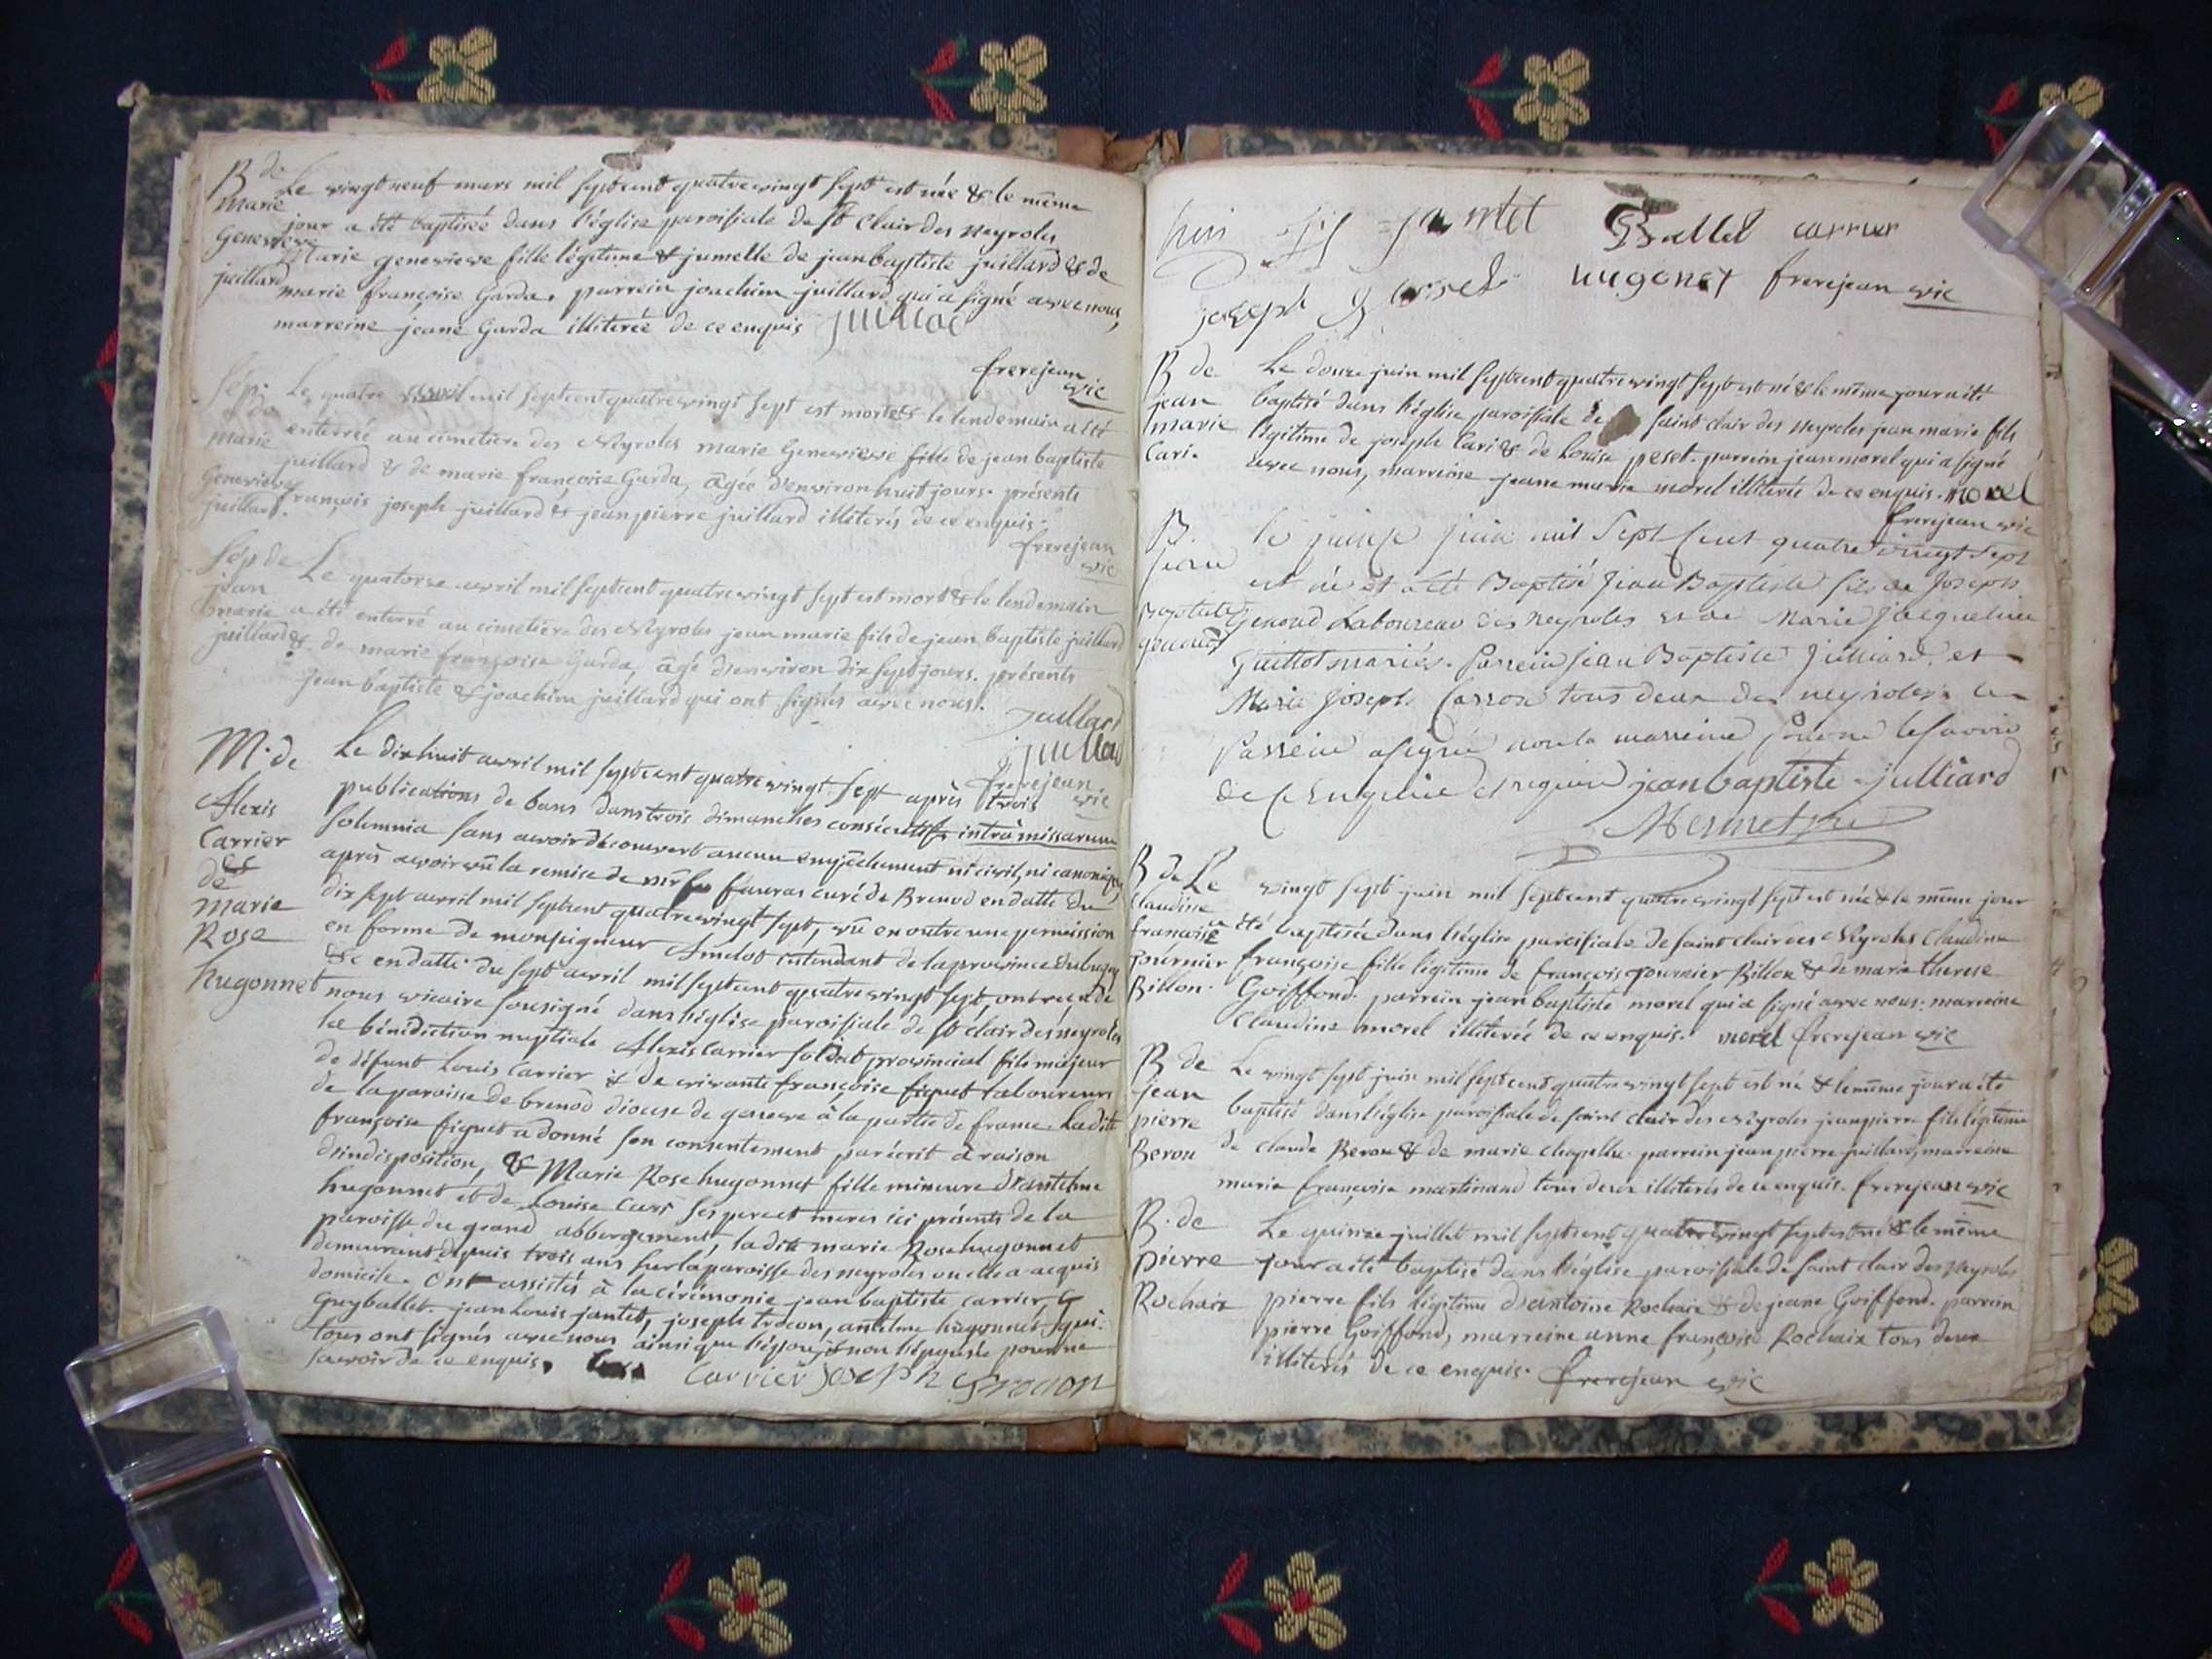 B de
Marie
Genevieve
juillard
Le vingt neuf mars mil septcent quatrevingt sept est née & le même
jour a été baptisée dans l'église paroissiale de St Clair des Neyroles
Marie genevieve fille légitime & jumelle de jean baptiste juillard & de
marie françoise Garda. parrein joachim juillard qui a signé avec nous,
marreine jeane Garda illiterée de ce enquis juillard
frerejean
vic
Sép:
de
marie
Genevieve
juillard.
Le quatre avril mil septcent quatrevingt sept est morte & le lendemain a été
enterrée au cimetiere des Neyroles marie Genevieve fille de jean baptiste
juillard & de marie françoise Garda, agée d'environ huit jours. présents
françois joseph juillard & jean pierre juillard illiterés de ce enquis.
frerejean
vic
Sép de
jean
marie
juillard
Le quatorse avril mil septcent quatrevingt sept est mort & le lendemain
a été enterré au cimetiere des Neyroles jean marie fils de jean baptiste juillard
& de marie françoise Garda, âgé d'environ dix sept jours. présents
jean baptiste & joachim juillard qui ont signés avec nous.
juillard
juillard
frerejean
vic
M. de
Alexis
Carrier
&
de
Marie
Rose
hugonnet
Le dixhuit avril mil septcent quatrevingt sept après trois
publications de bans dans trois dimanches consécutifs intrà missarum
solemnia sans avoir découvert aucun empêchement ni civil, ni canonique,
après avoir vû la remise de mr fauras curé de Brenod en datte du
dix sept avril mil septcent quatrevingt sept, vû en outre une permission
en forme de monseigneur Amelot intendant de la province du bugey
&c en datte du sept avril mil septcent quatrevingt sept, ont reçu de
nous vicaire sousigné dans l'église paroissiale de St clair des neyroles
la bénédiction nuptiale Alexis Carrier soldat provincial fils majeur
de défunt Louis Carrier & de vivante françoise figuet laboureurs
de la paroisse de brenod diocese de geneve à la partie de france. Ladite
françoise figuet a donné son consentement par écrit à raison
d'indisposition, & Marie Rose hugonnet fille mineure d'antelme
hugonnet et de Louise Curt ses pere et mere ici présents de la
paroisse du grand abbergement, la dite marie Rose hugonnet
demeurant depuis trois ans sur la paroisse des neyroles ou elle a acquis
domicile. Ont assistés à la cérémonie jean baptiste carrier,
Guy ballet. jean Louis jantet, joseph trocon, antelme hugonnet qui
tous ont signés avec nous ainsi que l'époux non l'épouse pour ne
savoir de ce enquis, Carrier joseph trocon
jantet Ballet carrier
joseph hugonet frerejean vic
B de
jean
marie
Cari.
Le douze juin mil septcent quatrevingt sept est né & le même jour a été
baptisé dans l'église paroissiale de saint clair des Neyroles jean marie fils
légitime de joseph Cari & de Louise peset. parrein jean morel qui a signé
avec nous, marreine jeane marie morel illiterée de ce enquis. morel
frerejean vic
B.
jean
baptiste
genoud
le juin mil Sept Cent quatre vingt Sept
est né et a été Baptisé Jean Baptiste fils de Joseph
Genoud Laboureur des neyroles et de Marie Jacqueline
Guillot mariés. Parrein Jean Baptiste Juilliard, et
Marie Joseph tous deux des neyroles le
Parrein a signé non la marreine pour ne le savoir
de ce Enquise et requise jean baptiste julliard
Mermet
B de
Claudine
françoise
fournier
Billon.
Le vingt sept juin mil septcent quatrevingt sept est née & le même jour
a été baptisée dans l'église paroissiale de saint clair des Neyroles Claudine
françoise fille légitime de françois fournier Billon & de marie therese
Goiffond. parrein jean baptiste morel qui a signé avec nous. marreine
Claudine morel illiterée de ce enquis. morel frerejean vic
B de
jean
pierre
Berou
Le vingt sept juin mil septcent quatrevingt sept est né & le même jour a été
baptisé dans l'église paroissiale de saint clair des Neyroles jean pierre fils légitime
de claude Berou & de marie chapelle. parrein jean pierre juillard, marreine
marie françoise martinand tous deux illiterés de ce enquis. frerejean vic
B. de
pierre
Rochaix
Le quinze juillet mil septcent quatrevingt sept est né & le même
jour a été baptisé dans l'église paroissiale de saint clair des Neyroles
pierre fils légitime d'antoine Rochaix & de jeane Goiffond. parrein
pierre Goiffond, marreine anne françoise Rochaix tous deux
illiterés de ce enquis. frerejean vic